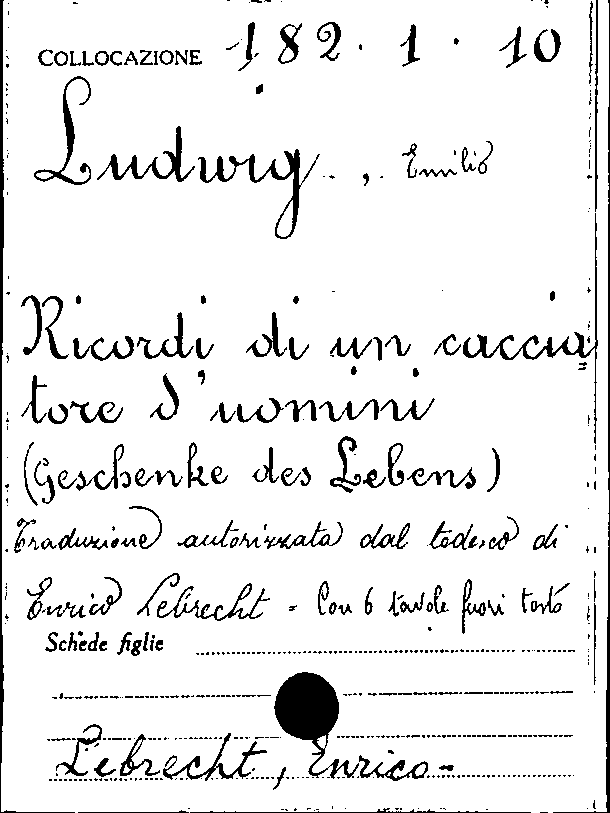 COLLOCAZIONE 182.1.10
Ludwig, Emilio
Ricordi di un caccia=
tore d'uomini
(Geschenke des Lebens)
Traduzione autorizzata dal tedesco di
Enrico Lebrecht - Con 6 tavole fuori testo
Schede figlie
Lebrecht, Enrico-